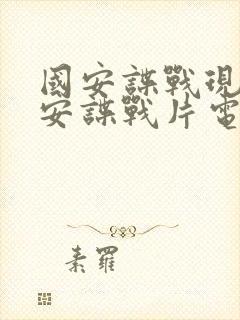 國安諜戰現
安諜戰片電
素羅